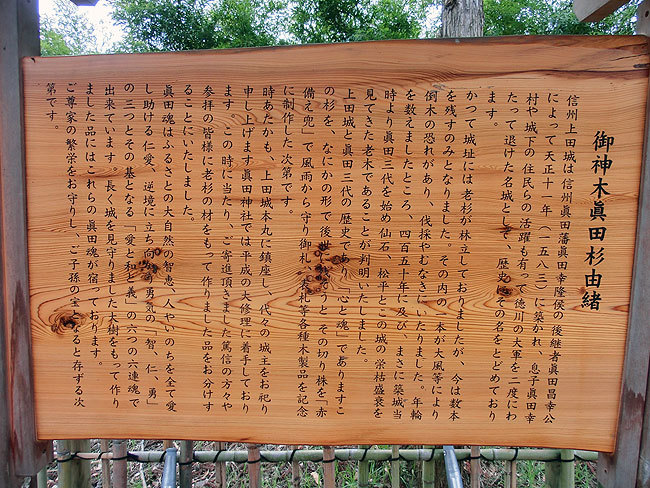 御神木眞田杉由緒
信州上田城は信州眞田藩眞田幸隆侯の後継者眞田昌幸公
によって天正十一年(一五八三)に築かれ、息子眞田幸
村や城下の住民らの活躍も有って徳川の大軍を二度にわ
たって退けた名城として、歴史にその名をとどめており
ます。
かつて城址には老杉が林立しておりましたが、今は数本
を残すのみとなりました。その内の一本が大風等により
倒木の恐れがあり、伐採やむなきにいたりました。年輪
を数えましたところ、四百五十年に及び、まさに築城当
時より眞田三代を始め仙石、松平とこの城の栄枯盛衰を
見てきた老木であることが判明いたしました。
上田城と眞田三代の歴史であり、心と魂、でありますこ
の杉を、なにかの形で後世に うと、その切り株を「赤
備え兜」で風雨から守り御札、表札等各種木製品を記念
に制作した次第です。
時あたかも、上田城本丸に鎮座し、代々の城主をお祀り
申し上げます眞田神社では平成の大修理に着手しており
ます。この時に当たり、ご寄進頂きました篤信の方々や
参拝の皆様に老杉の材をもって作りました品をお分けす
ることにいたしました。
眞田魂はふるさとの大自然の智恵、人やいのちを全て愛
し助ける仁愛、逆境に立ち向かう勇気の「智、仁、勇」
の三つとその基となる「愛と和と義」の六つの六連魂で
出来ています。長く城を見守りました大樹をもって作り
ました品にはこれらの眞田魂が宿っております。
ご尊家の繁栄をお守りし、ご子孫の宝となると存ずる次
第です。